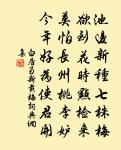 池邊新種七株梅
欲到花時點檢來
莫怕長州桃李妒
今年好為使君開
白居易新栽梅詞典網
集